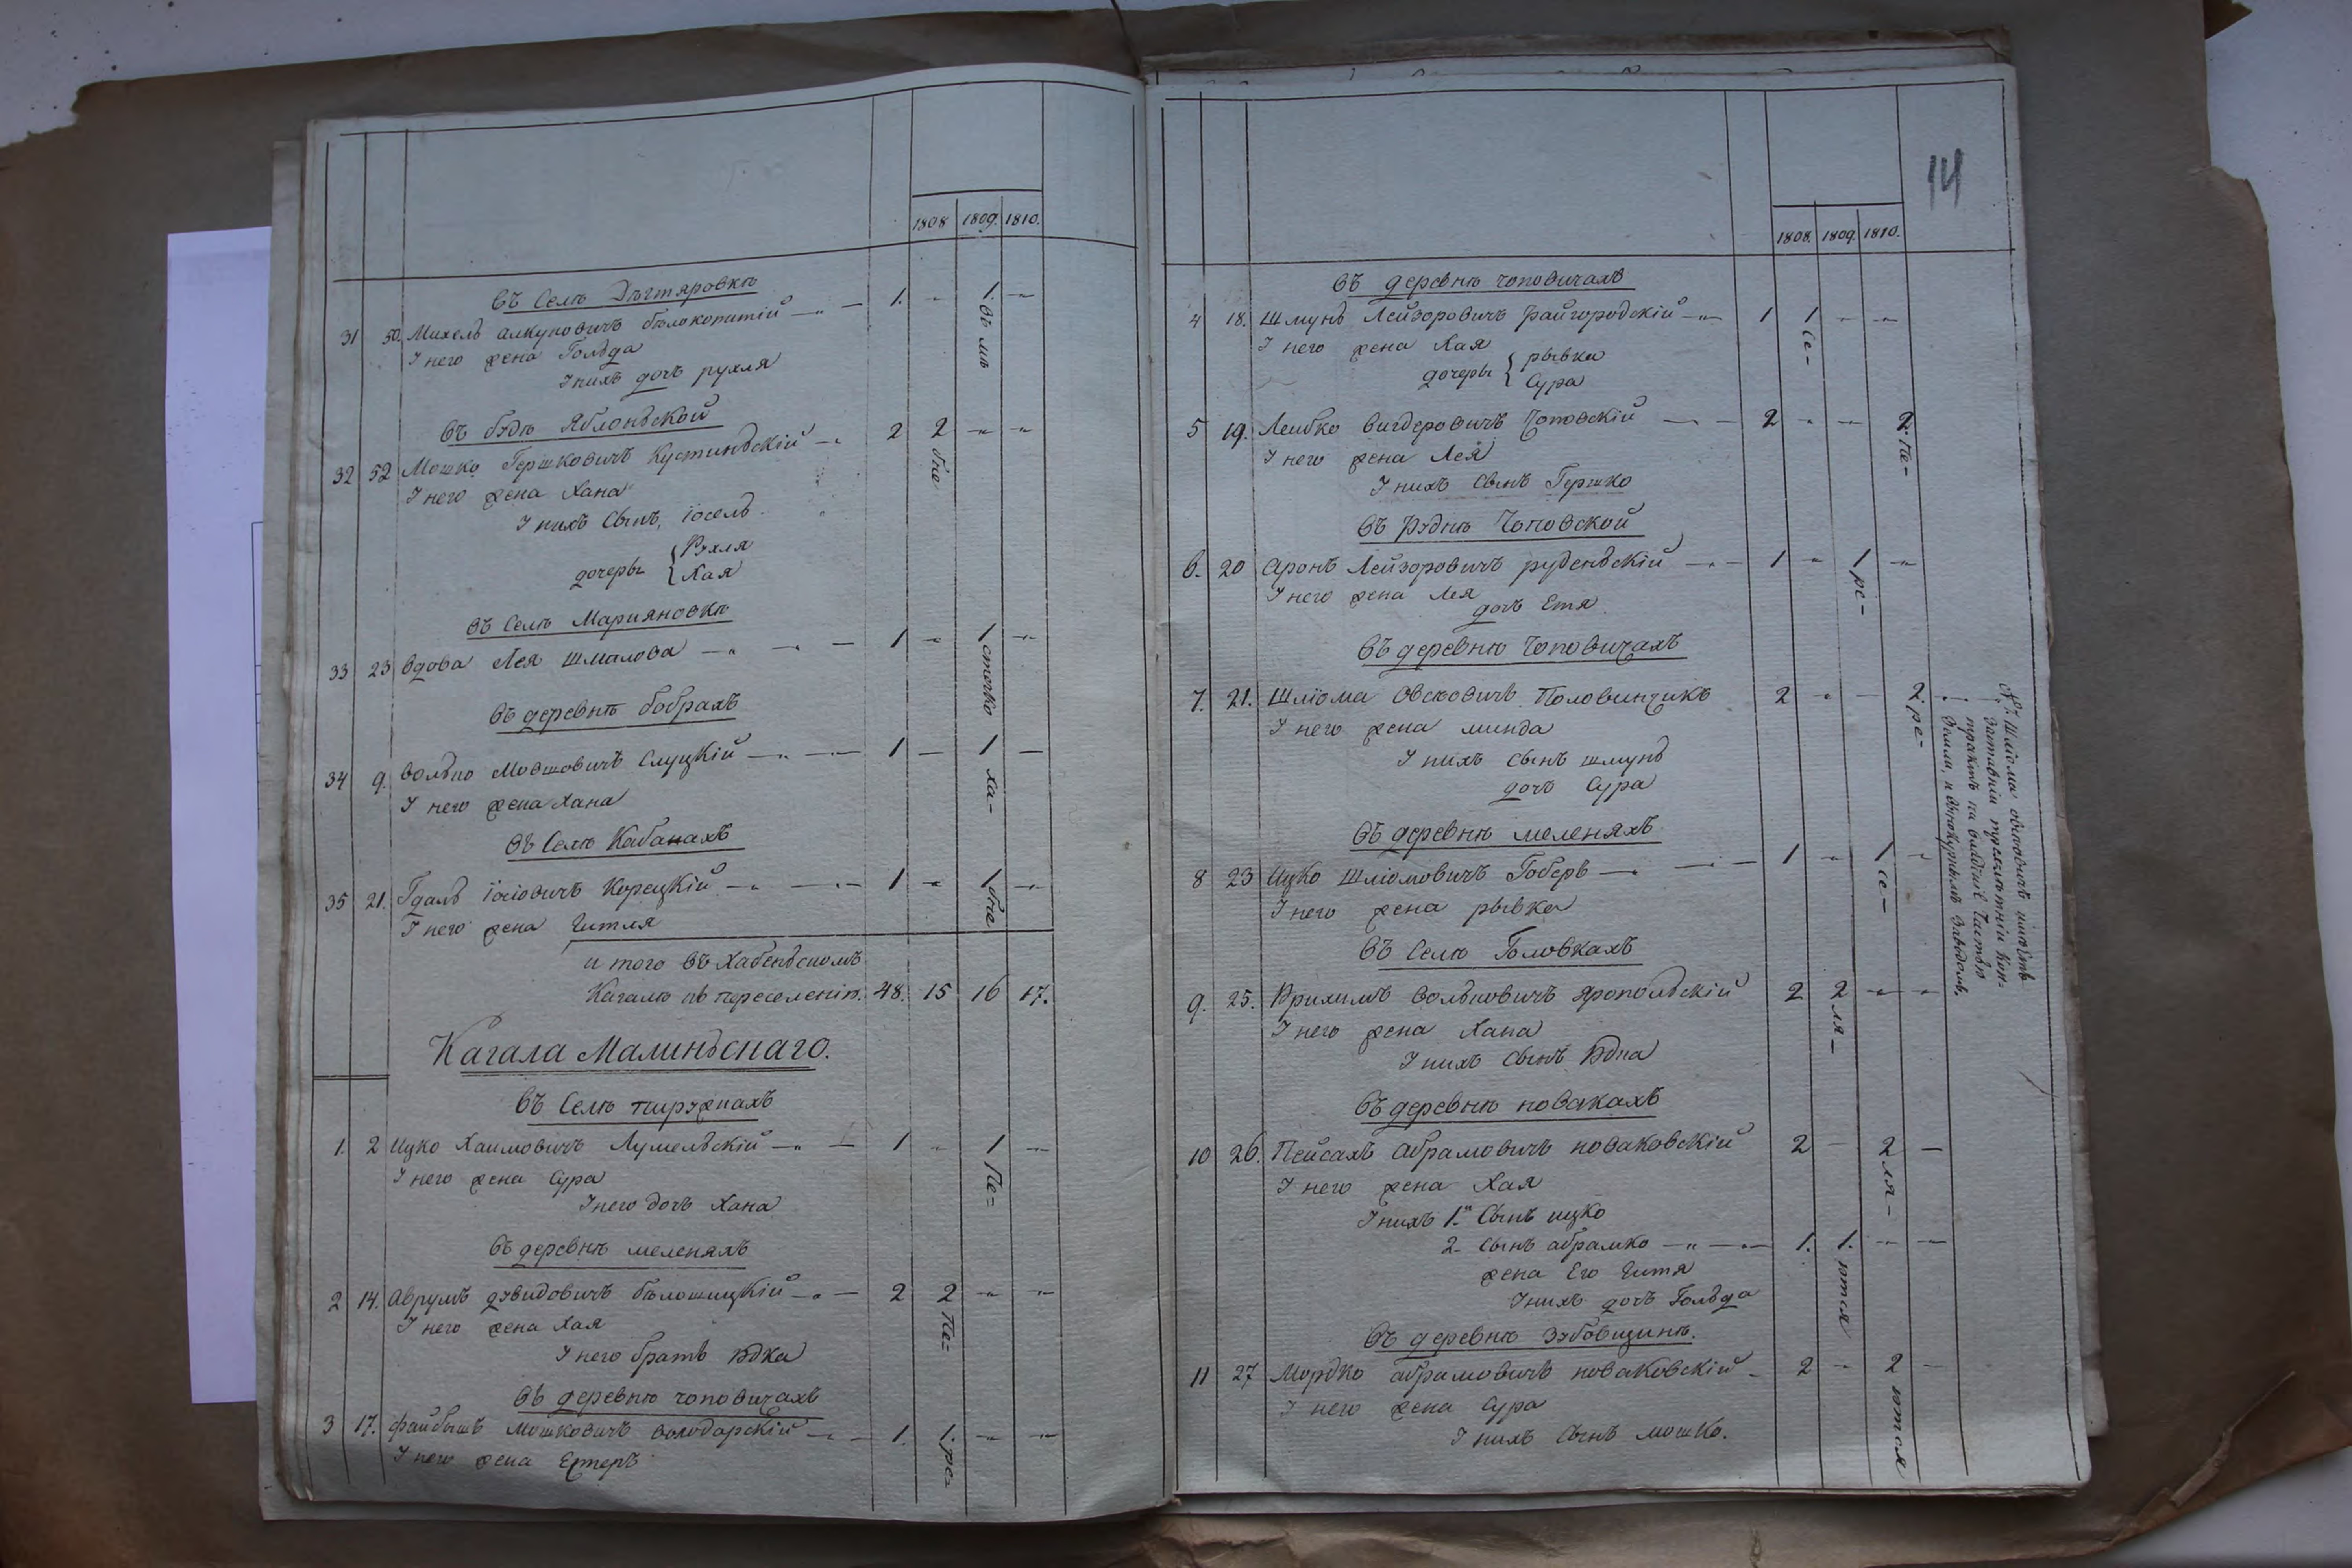 1808 1809. 1810.
Въ Селѣ Дѣгтяровкѣ
31 50. Михель Бѣлокопитій 1. 1.
У него жена Гольда
У нихъ дочь рухля
Въ будѣ Яблоньской
32 52 Мошко Гершковичъ 2 2
У него жена Хана
У нихъ Сынъ, іосель
дочеры Рухля
Хая
Въ Селѣ Марияновкѣ
33 23 Вдова Лея Шмалова 1 1
Въ деревнѣ бобрахъ
34 9. Вольпо Мовшовичъ Слуцкій 1 1
У него жена Хана
Въ Селѣ Кабанахъ
35 21. Гдаль іосіовичъ Корецкій 1 1
У него жена Гитля
и того въ Хабенскомъ
Кагалѣ къ переселенію. 48. 15 16 17.
Кагала Малинскаго.
Въ Селѣ пирожкахъ
1. 2 Ицко Хаимовичъ 1 1
У него жена Сура
У него дочь Хана
Въ деревнѣ меленяхъ
2 14. Аврумъ дувидовичъ бѣлошицкій 2 2
У него жена Хая
У него братъ юдка
Въ деревнѣ чоповичахъ
3 17. файбышъ Мошковичъ володарскій 1. 1.
У него жена Естеръ
14
1808. 1809. 1810.
Въ деревнѣ чоповичахъ
4 18. Шмунь Лейзоровичъ райгородскій 1 1
У него жена Хая
дочеры рывка
Сура
5 19. Лейбко Вигдеровичъ Чоповскій 2 2.
У него жена Лея
У нихъ Сынъ Гершко
Въ Руднѣ Чоповской
6. 20 Аронъ Лейзоровичъ руденьскій 1 1
У него жена Лея
дочь Етя
Въ деревнѣ Чоповичахъ
7. 21. Шліома Овсіовичъ Половинчикъ 2 2
У него жена минда
У нихъ Сынъ шмунь
дочь Сура
Въ деревнѣ меленяхъ
8 23 Ицко Шліомовичъ Гоберъ 1 1
У него жена рывка
Въ Селѣ Головкахъ
9. 25. Вольповичъ яропольскій 2 2
У него жена Хана
У нихъ Сынъ юдка
Въ деревнѣ новакахъ
10 26. Пейсахъ абрамовичъ новаковскій 2 2
У него жена Хая
У нихъ 1. Сынъ ицко
2. Сынъ абрамко 1. 1.
жена Его Гитя
У нихъ дочь Гольда
Въ деревнѣ Зубовщинѣ.
11 27 Мордко абрамовичъ новаковскій 2 2
У него жена Сура
У нихъ Сынъ мошко.